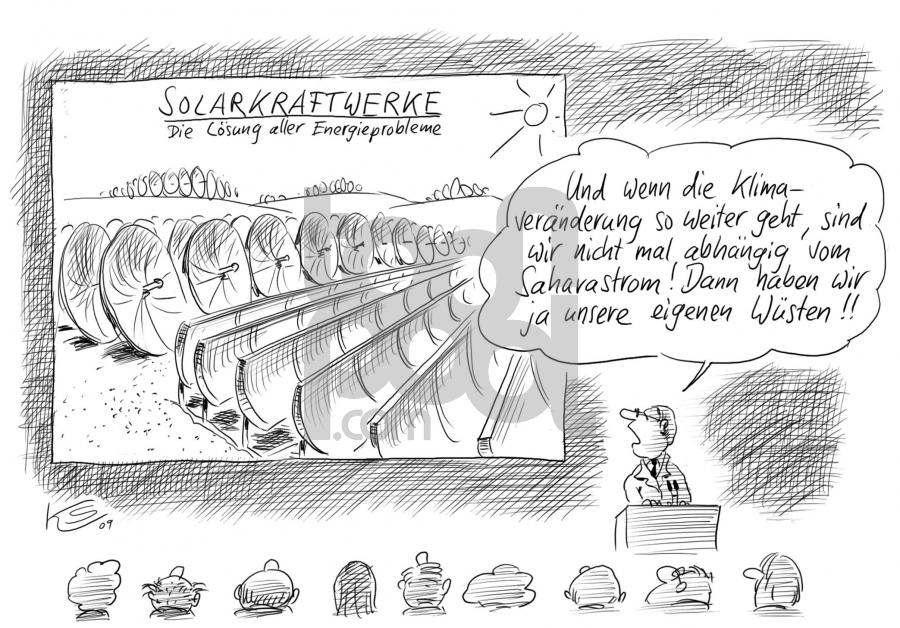 SOLARKRAFTWERKE
Die Lösung aller Energieprobleme
Und wenn die Klima-
veränderung so weiter geht, sind
wir nicht mal abhängig vom
Saharastrom! Dann haben wir
ja unsere eigenen Wüsten!!
.com
KS 09